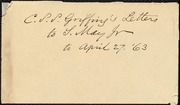 C. P. P. Griffing's Letters
to S. May Jr
to April 27. '63